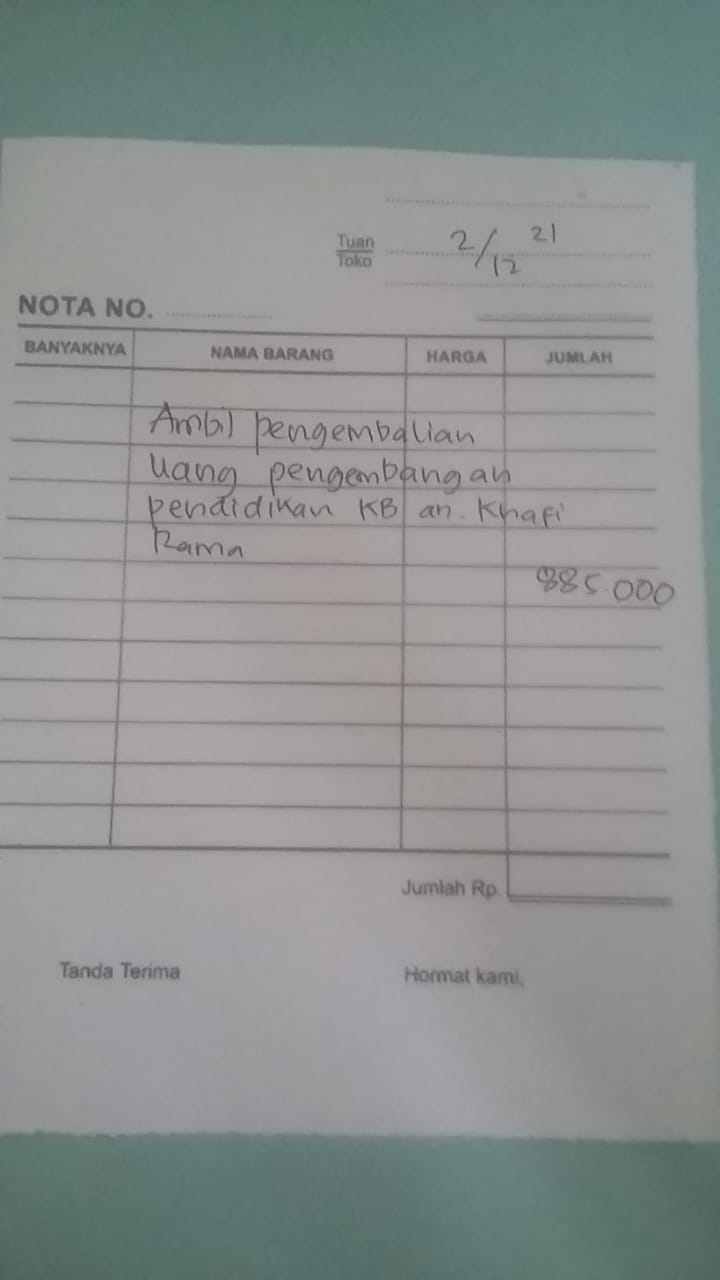 2/12 21
Tuan
Toko
NOTA NO.
BANYAKNYA NAMA BARANG HARGA JUMLAH
Ambil pengembalian
Uang pengembangan
pendidikan KB an. Khafi
Rama
885.000
Jumlah Rp.
Tanda Terima Hormat kami,